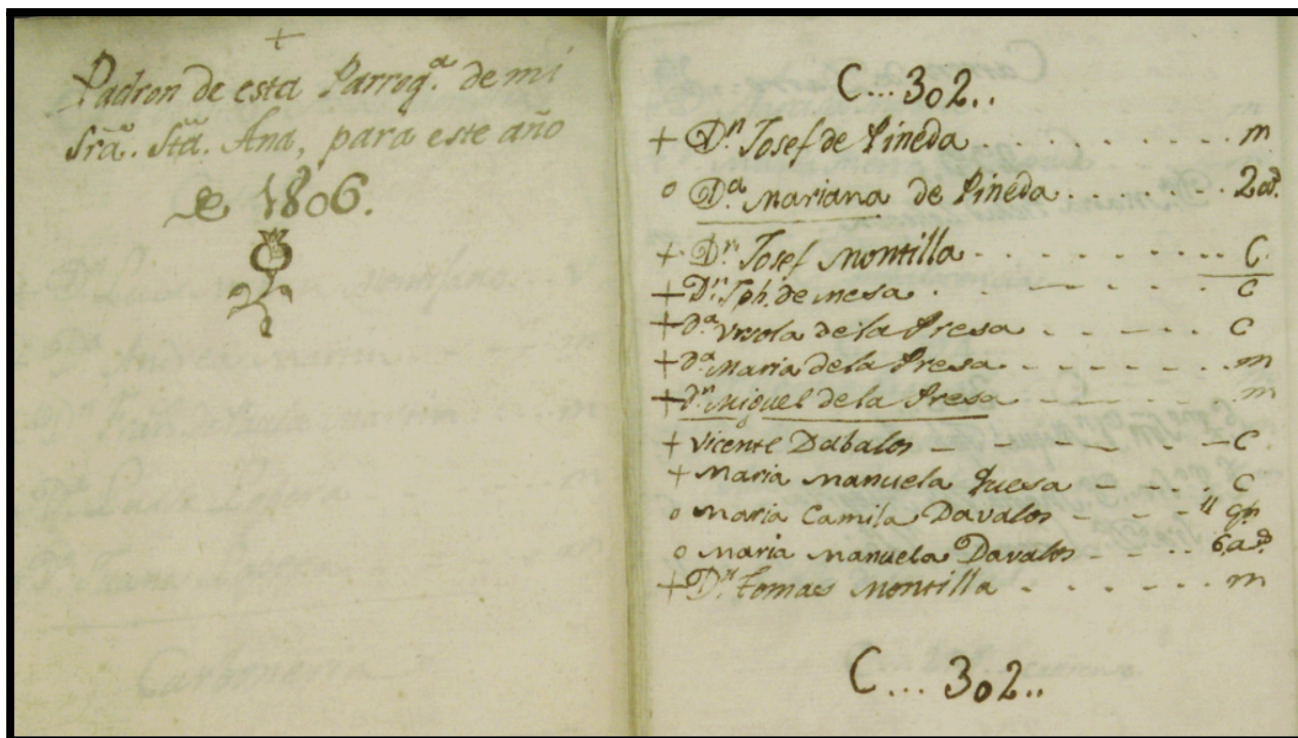 +
Padron de esta Parroq.ª de mi
Srã. Stã. Ana, para este año
de 1806.
C...302..
+ D.n Josef de Pineda . . . . . . . . . m
o D.ª Mariana de Pineda . . . . . . 2 a.s
+ D.n Josef Montilla . . . . . . . . . . C.
+ D.n Jph. de Mesa . . - - - - C
+ D.ª Ursola de la Presa - - - - - C
+ D.ª Maria de la Presa - - - - - - m
+ D.n Miguel de la Presa - - - - - m
+ Vicente Dabalos - - - - - - - C
+ Maria Manuela - - - - C
o Maria Camila Davalos - - - - 11
o Maria Manuela Davalos - - - . . 6 a.s
+ D.n Tomas Montilla . . . . . . m
C... 302..
Carboneria